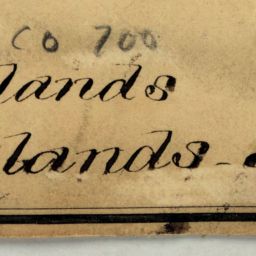 CO 700
lands
lands